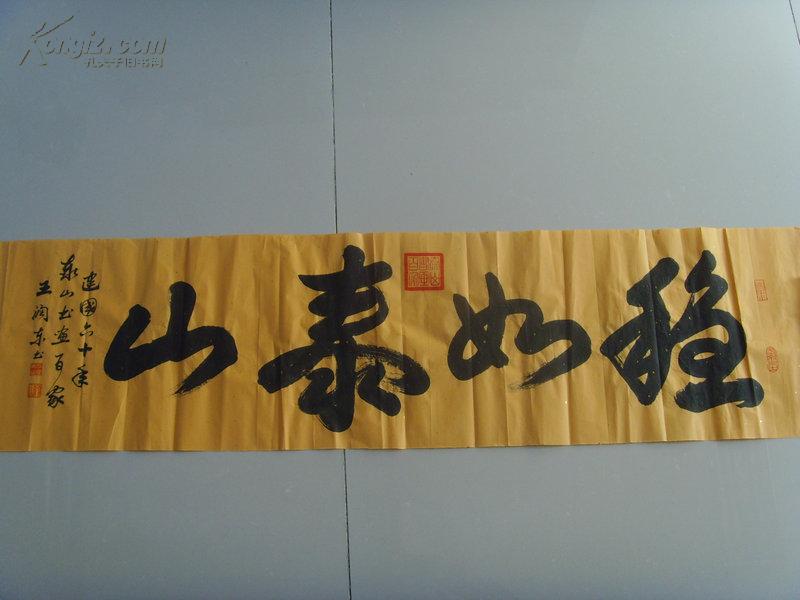 稳如泰山
建國六十年
泰山书画百家
王润东书
Kongfz.com
孔夫子旧书网